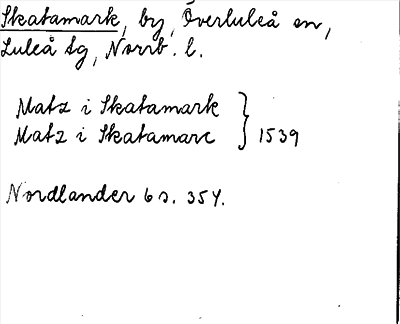 Skatamark, by, Överluleå sn,
Luleå tg, Norrb. l.
Matz i Skatamark
Matz i Skatamarc } 1539
Nordlander 6 s. 354.